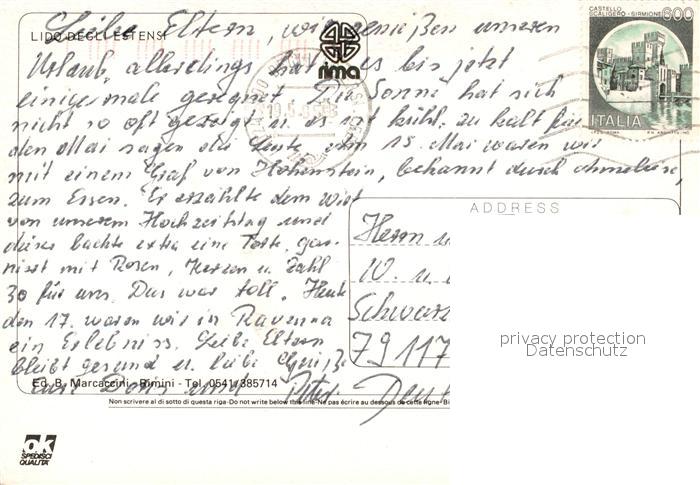 LIDO DEGLI ESTENSI
rima
CASTELLO SCALIGERO - SIRMIONE 600
ITALIA
Liebe Eltern, wir genießen unseren
Urlaub, allerdings hat es bis jetzt
einigemale geregnet. Die Sonne hat sich
nicht so oft gezeigt u. es ist kühl, zu kalt für
den Mai sagen die Leute. Am 15. Mai waren wir
mit einem Graf von Hohenstein, bekannt durch
zum Essen. Er erzählte dem Wirt
von unserem Hochzeitstag und
dieser backte extra eine Torte, gar-
niert mit Rosen, Herzen u. Zahl
30 für uns. Das war toll. Heute
den 17. waren wir in Ravenna
ein Erlebniss. Liebe Eltern
bleibt gesund u. liebe Grüße
Eure Doris und Peter
ADDRESS
Herrn u.
W. u.
Schwarz
79117
Deut
privacy protection
Datenschutz
Ed. B. Marcaccini - Rimini - Tel. 0541/385714
Non scrivere al di sotto di questa riga-Do not write below this line-Ne pas écrire au dessous de cette ligne-Bi
ok
SPEDISCI
QUALITA'